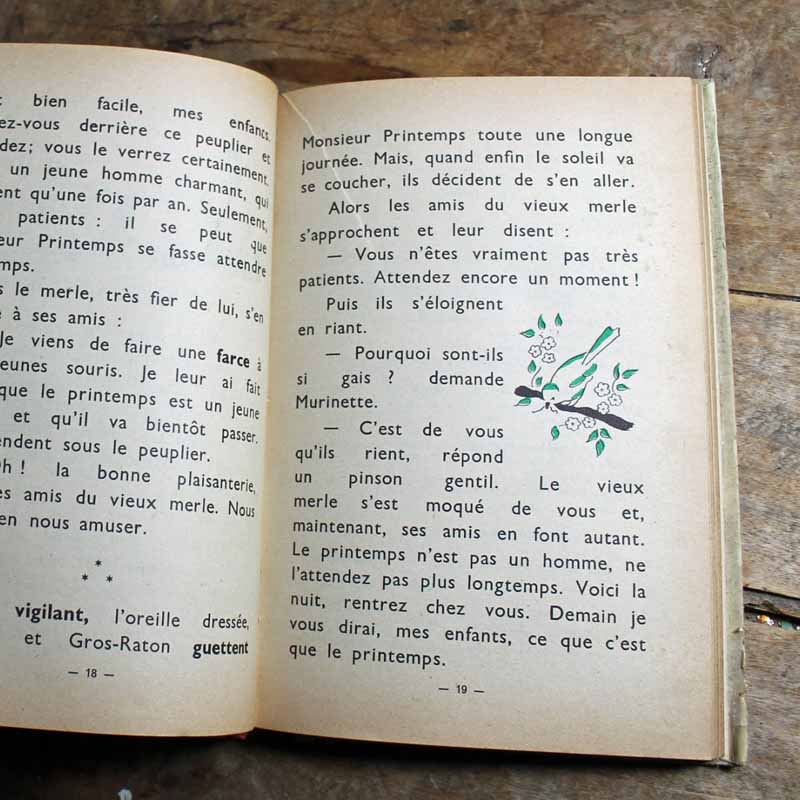 bien facile, mes enfants.
ez-vous derrière ce peuplier et
dez; vous le verrez certainement.
un jeune homme charmant, qui
ent qu'une fois par an. Seulement,
patients : il se peut que
eur Printemps se fasse attendre
mps.
s le merle, très fier de lui, s'en
à ses amis :
Je viens de faire une farce à
eunes souris. Je leur ai fait
que le printemps est un jeune
et qu'il va bientôt passer.
endent sous le peuplier.
Oh ! la bonne plaisanterie,
es amis du vieux merle. Nous
en nous amuser.
*
* *
vigilant, l'oreille dressée,
et Gros-Raton guettent
— 18 —
Monsieur Printemps toute une longue
journée. Mais, quand enfin le soleil va
se coucher, ils décident de s'en aller.
Alors les amis du vieux merle
s'approchent et leur disent :
— Vous n'êtes vraiment pas très
patients. Attendez encore un moment !
Puis ils s'éloignent
en riant.
— Pourquoi sont-ils
si gais ? demande
Murinette.
— C'est de vous
qu'ils rient, répond
un pinson gentil. Le vieux
merle s'est moqué de vous et,
maintenant, ses amis en font autant.
Le printemps n'est pas un homme, ne
l'attendez pas plus longtemps. Voici la
nuit, rentrez chez vous. Demain je
vous dirai, mes enfants, ce que c'est
que le printemps.
— 19 —